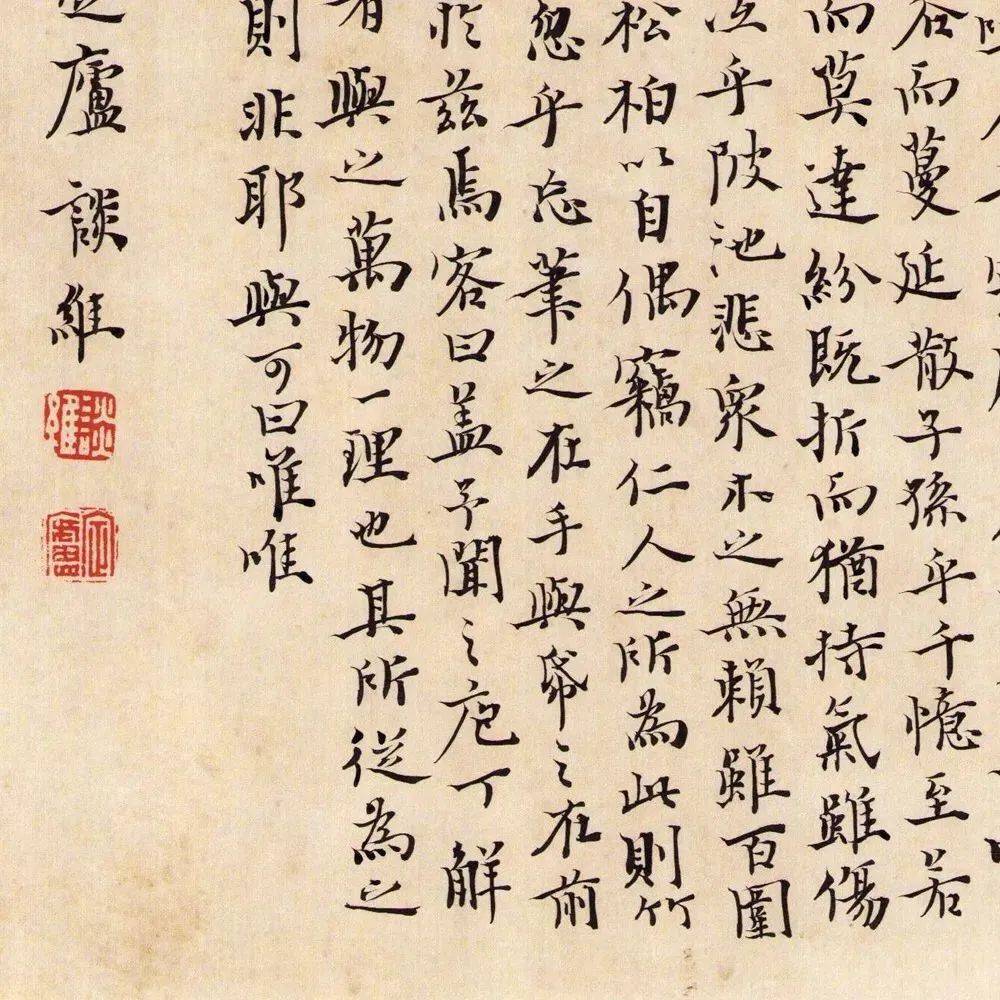 谷而蔓延散子孫乎千憶至若
而莫達紛既折而猶持氣雖傷
乎陂池悲衆木之無賴雖百圍
松柏以自偶竊仁人之所為此則竹
忽乎忘筆之在手與帋之在前
於茲焉客曰盖予聞之庖丁解
者與之萬物一理也其所從為之
則非耶與可曰唯唯
廬談維
談維
定廬